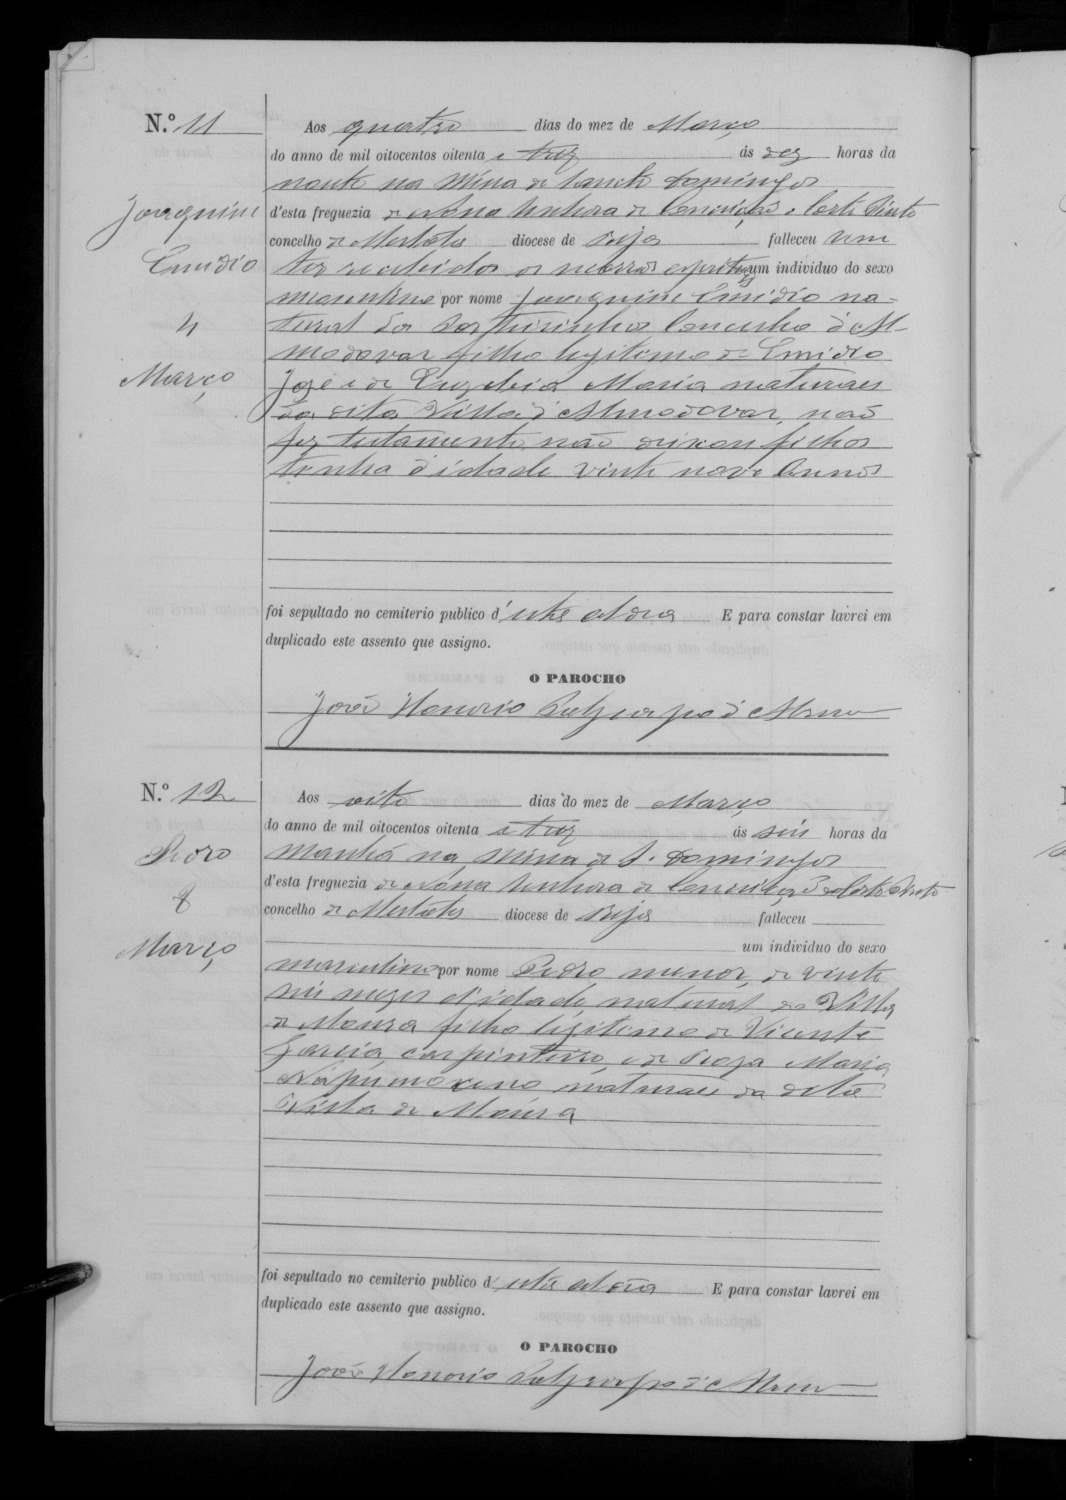 N.º 11
Joaquim
Emidio
4
Março
Aos quatro dias do mez de Março
do anno de mil oitocentos oitenta e trez ás dez horas da
noute na Mina de Sancto Domingos
d'esta freguezia de Nossa Senhora da Conceição e Corte Pinto
concelho de Mertola diocese de Beja falleceu sem
ter recebidos os um individuo do sexo
masculino por nome Joaquim Emidio na-
tural da Concelho d'Al-
modovar filho legitimo de Emidio
José e de Maria naturaes
da dita Villa d'Almodovar, não
fez testamento não deixou filhos
tinha d'idade vinte nove annos
foi sepultado no cemiterio publico d' esta aldeia E para constar lavrei em
duplicado este assento que assigno.
O PAROCHO
João Honorio
N.º 12
Pedro
8
Março
Aos oito dias do mez de Março
do anno de mil oitocentos oitenta e trez ás seis horas da
manhã na Mina de S. Domingos
d'esta freguezia de Nossa Senhora da Conceição de Corte Pinto
concelho de Mertola diocese de Beja falleceu
um individuo do sexo
masculino por nome Pedro menor, de vinte
seis mezes d'idade, natural da Villa
de Moura filho legitimo de Vicente
Garcia, carpinteiro, e de Maria
naturaes da dita
Villa de Moura
foi sepultado no cemiterio publico d' esta aldeia E para constar lavrei em
duplicado este assento que assigno.
O PAROCHO
João Honorio